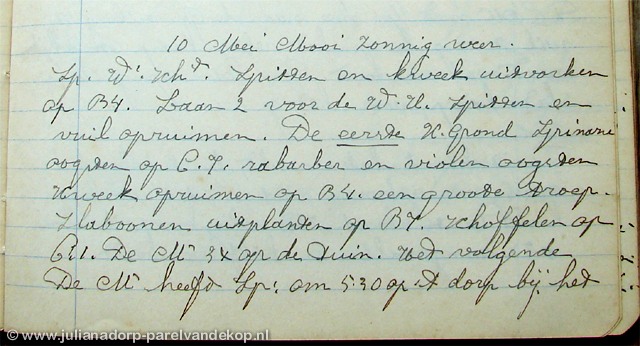 10 Mei Mooi zonnig weer.
Sp. Wt. Schd. Spitten en kweek uitvorken
op B4. Laan 2 voor de W.H. Spitten en
vuil opruimen. De eerste K. Grond Spinazie
oogsten op C.7. rabarber en violen oogsten
Kweek opruimen op B4. een groote troep.
Slaboonen uitplanten op B7. schoffelen op
De Mr 3x op de Tuin. Het volgende
De Mr heeft Sp. om 5.30 op 't dorp bij het
© www.julianadorp-parelvandekop.nl